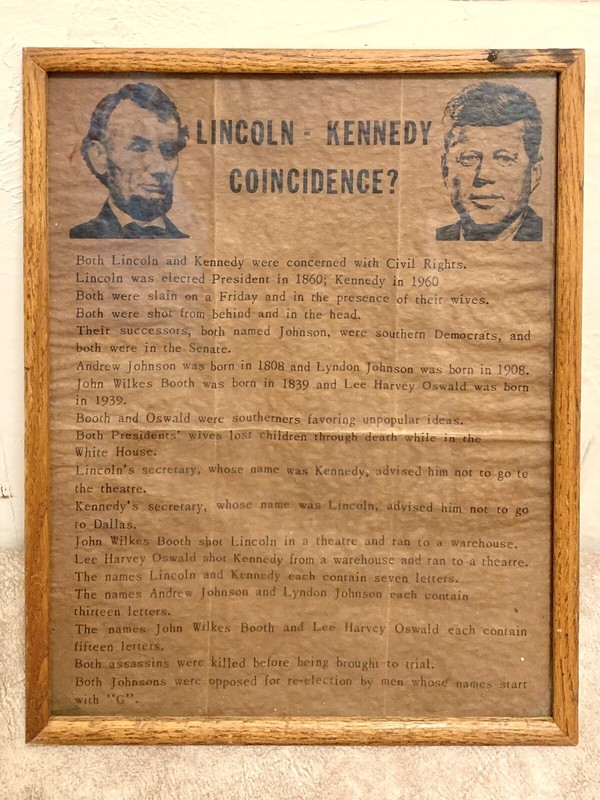 LINCOLN - KENNEDY
COINCIDENCE?
Both Lincoln and Kennedy were concerned with Civil Rights.
Lincoln was elected President in 1860; Kennedy in 1960
Both were slain on a Friday and in the presence of their wives.
Both were shot from behind and in the head.
Their successors, both named Johnson, were southern Democrats, and
both were in the Senate.
Andrew Johnson was born in 1808 and Lyndon Johnson was born in 1908.
John Wilkes Booth was born in 1839 and Lee Harvey Oswald was born
in 1939.
Booth and Oswald were southerners favoring unpopular ideas.
Both Presidents' wives lost children through death while in the
White House.
Lincoln's secretary, whose name was Kennedy, advised him not to go to
the theatre.
Kennedy's secretary, whose name was Lincoln, advised him not to go
to Dallas.
John Wilkes Booth shot Lincoln in a theatre and ran to a warehouse.
Lee Harvey Oswald shot Kennedy from a warehouse and ran to a theatre.
The names Lincoln and Kennedy each contain seven letters.
The names Andrew Johnson and Lyndon Johnson each contain
thirteen letters.
The names John Wilkes Booth and Lee Harvey Oswald each contain
fifteen letters.
Both assassins were killed before being brought to trial.
Both Johnsons were opposed for re-election by men whose names start
with "G".